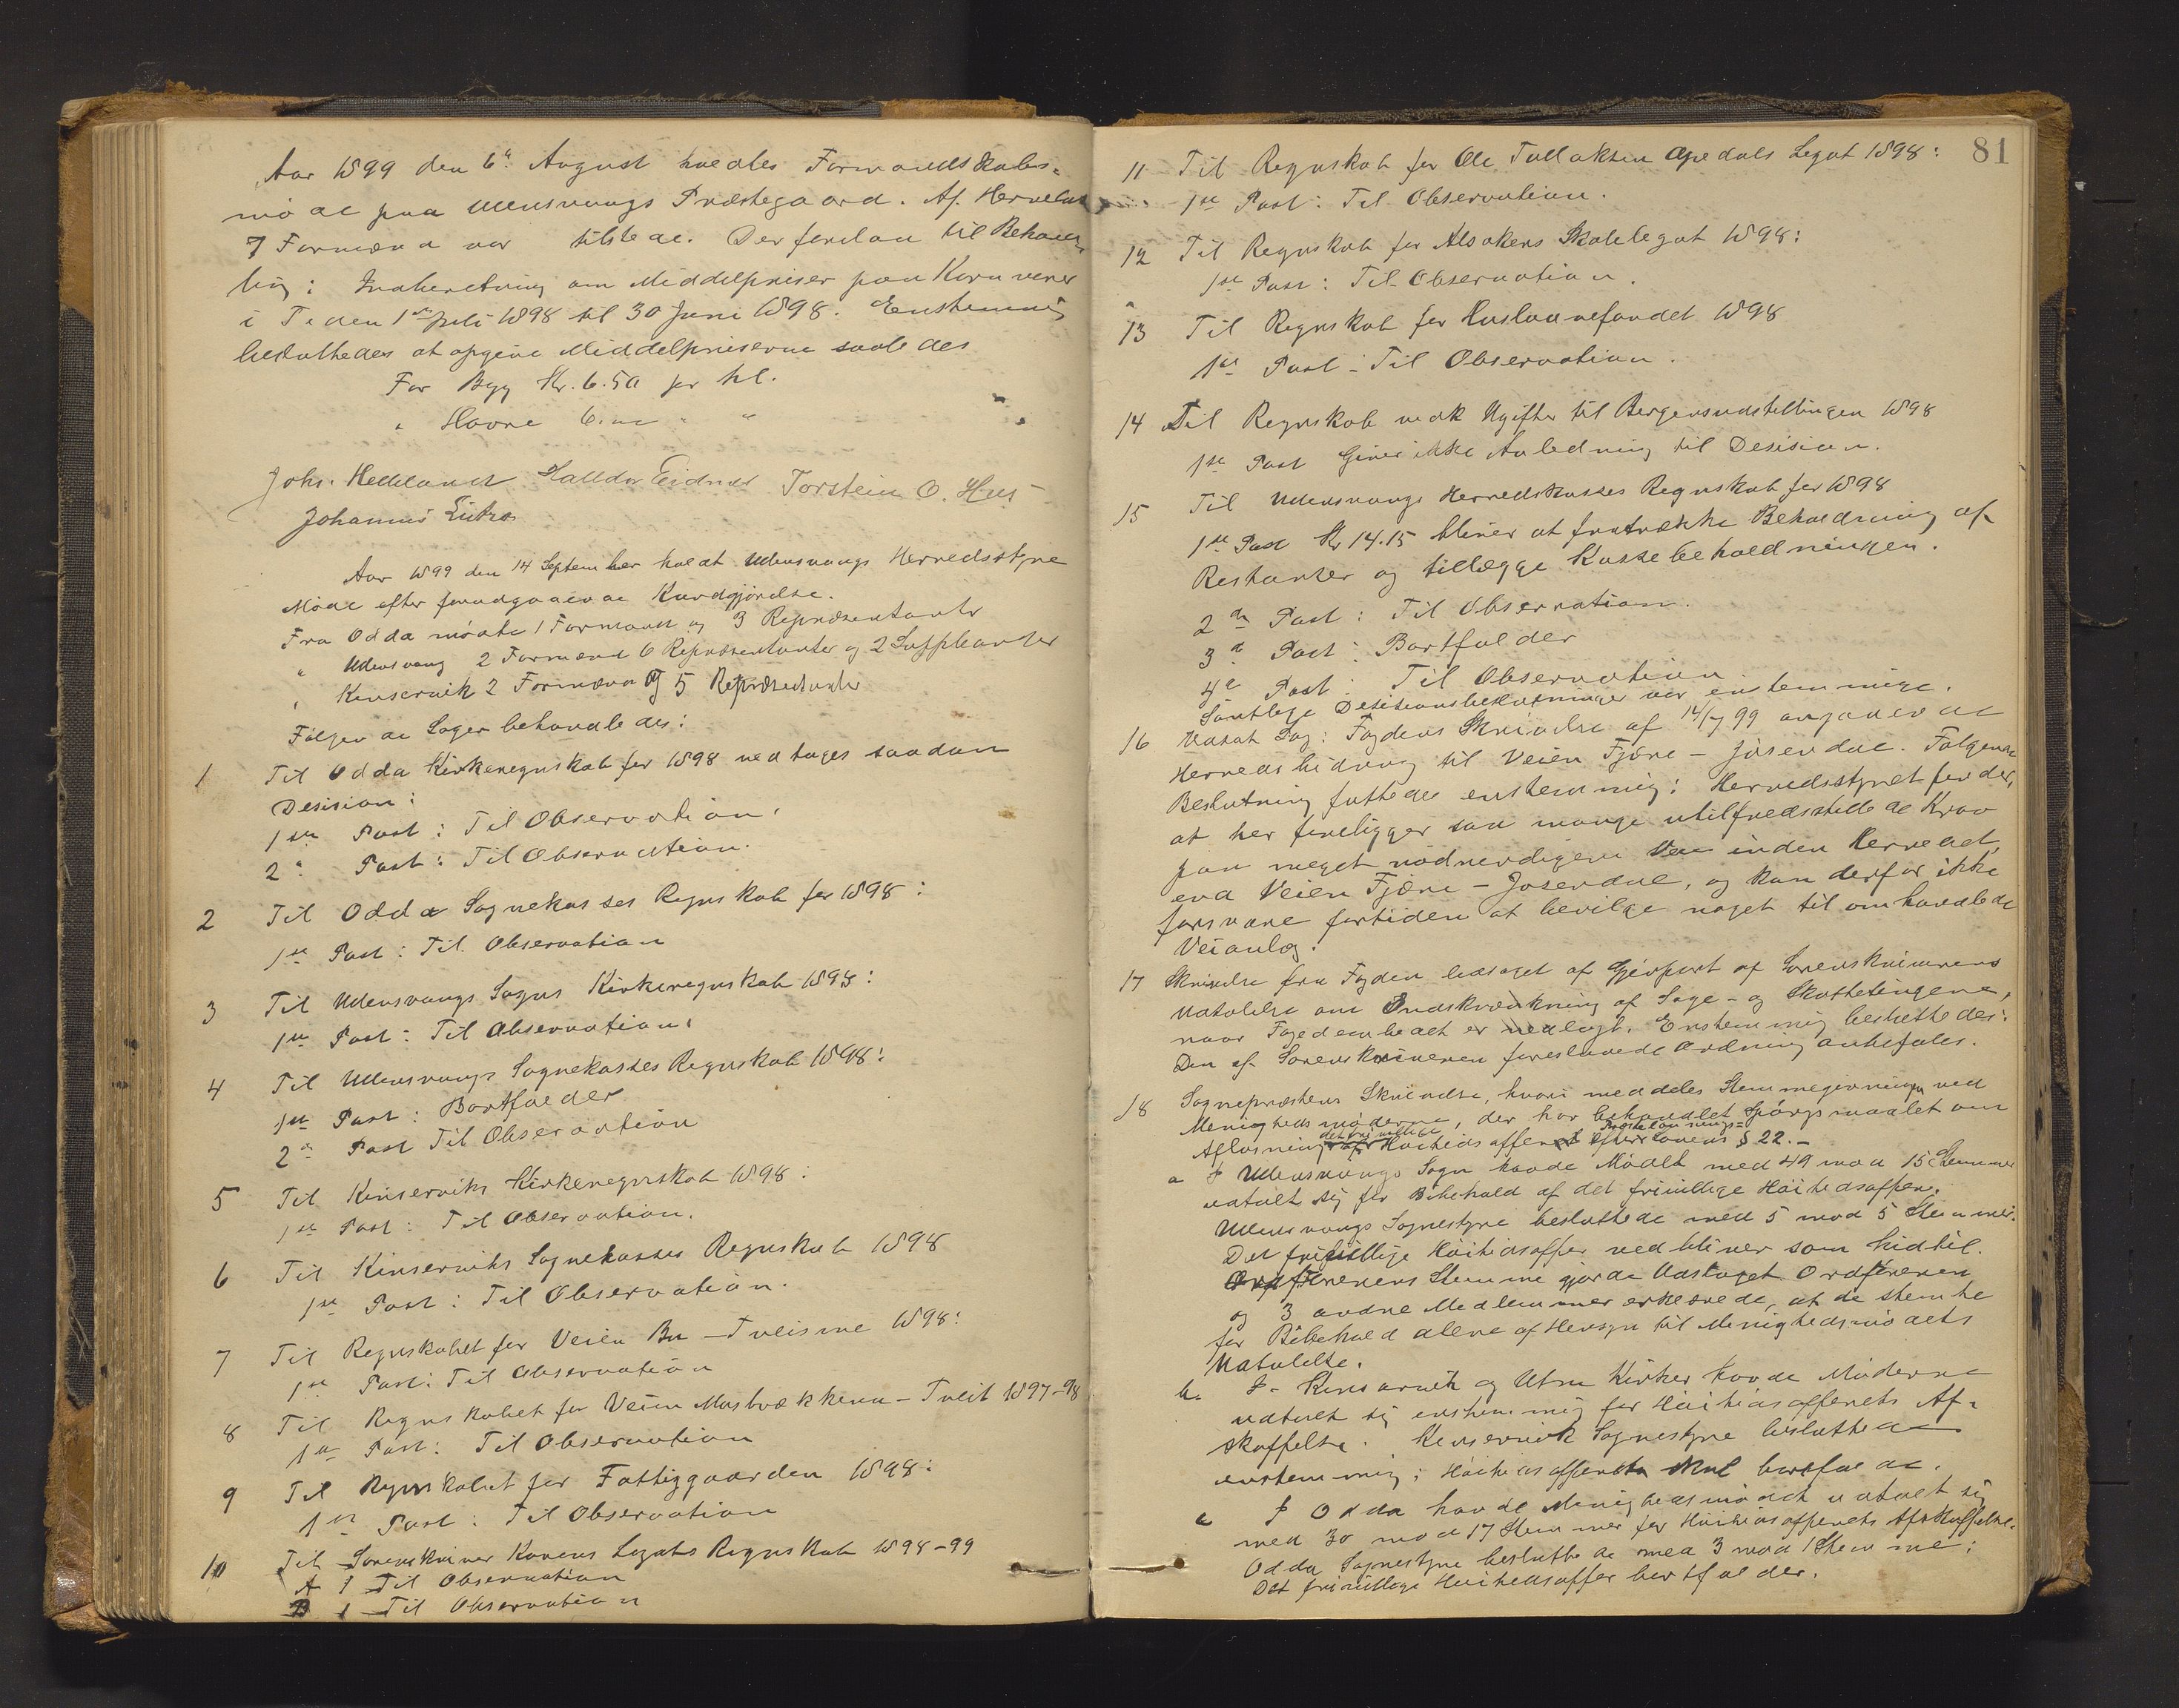 Aar 1899 den 6te August holdtes Formandskabs-
møde paa Ullensvangs Præstegaard. Af Herredets
7 Formænd var tilstede. Der forelaa til Behand-
ling: Indberetning om Middelpriser paa Kornvarer
i Tiden 1ste Juli 1898 til 30 Juni 1898. Enstemmig
besluttedes at opgive Middelpriserne saaledes
For Byg Kr. 6.50 per hl.
" Havre 6.00 " "
Johs. Helleland Halldor Eidnes Torstein O. Hus
Johannes Eitro
Aar 1899 den 14 September holdt Ullensvangs Herredsstyre
Møde efter forudgaaende Kundgjørelse.
Fra Odda mødte 1 Formand og 3 Repræsentanter
" Ullensvang 2 Formænd 6 Repræsentanter og 2 Suppleanter
" Kinservik 2 Formænd og 5 Repræsentanter
Følgende Sager behandledes:
1 Til Odda Kirkeregnskab for 1898 vedtoges saadan
Desision:
1ste Post: Til Observation.
2" Post: Til Observation.
2 Til Odda Sognekasses Regnskab for 1898:
1ste Post: Til Observation
3 Til Ullensvangs Sogns Kirkeregnskab 1898:
1ste Post: Til Observation.
4 Til Ullensvangs Sognekasses Regnskab 1898:
1ste Post: Bortfalder
2den Post Til Observation
5 Til Kinserviks Kirkeregnskab 1898:
1ste Post: Til Observation.
6 Til Kinserviks Sognekasses Regnskab 1898
1ste Post: Til Observation.
7 Til Regnskabet for Veien Bu - Tveisme 1898:
1ste Post: Til Observation
8 Til Regnskabet for Veien Mosbækkene - Tveit 1897-98
1ste Post: Til Observation
9 Til Regnskabet for Fattiggaarden 1898:
1ste Post: Til Observation
10 Til Sorenskriver Korens Legats Regnskab 1898-99
A 1 Til Observation
B 1 Til Observation
81
11 Til Regnskab for Ole Tollaksen Apedals Legat 1898:
1ste Post: Til Observation.
12 Til Regnskab for Alsakers Skolelegat 1898:
1ste Post: Til Observation.
13 Til Regnskab for Huslaanefondet 1898
1ste Post: Til Observation.
14 Til Regnskab vedk Udgifter til Bergensudstillingen 1898
1ste Post Giver ikke Anledning til Desision.
15 Til Ullensvangs Herredskasses Regnskab for 1898
1ste Post Kr 14.15 bliver at fratrække Beholdning af
Restanser og tillægge Kassebeholdningen.
2den Post: Til Observation.
3de Post: Bortfalder
4de Post: Til Observation
Samtlige Desisionsbeslutninger var enstemmige.
16 Udsat Sag: Fogdens Skrivelse af 14/7 99 angaaende
Herredsbidrag til Veien Fjære - Jøsendal. Følgende
Beslutning fattedes enstemmig: Herredsstyret finder,
at her foreligger saa mange utilfredsstillede Krav
paa meget nødvendigere Veie inden Herredet,
end Veien Fjære - Jøsendal, og kan derfor ikke
forsvare fortiden at bevilge noget til omhandlede
Veianlæg.
17 Skrivelse fra Fogden ledsaget af Gjenpart af Sorenskriverens
Udtalelse om Indskrænkning af Sage- og Skattetingene,
naar Fogedembedet er nedlagt. Enstemmig besluttedes:
Den af Sorenskriveren foreslaaede Ordning anbefales.
18 Sognepræstens Skrivelse, hvori meddeles Stemmegivningen ved
Menighedsmøderne, der har behandlet Spørgsmaalet om
Afløsning det frivillige Høitidsoffer efter Præstelønnings-
lovens § 22.-
a I Ullensvangs Sogn havde Mødet med 49 mod 15 Stemmer
udtalt sig for Bibehold af det frivillige Høitidsoffer.
Ullensvangs Sognestyre besluttede med 5 mod 5 Stemmer:
Det frivillige Høitidsoffer vedbliver som hidtil.
Ordførerens Stemme gjorde Udslaget. Ordføreren
og 3 andre Medlemmer erklærede, at de stemte
for Bibehold alene af Hensyn til Menighedsmødets
Udtalelse.
b. I Kinservik og Utne Kirker havde Møderne
udtalt sig enstemmig for Høitidsofferets Af-
skaffelse. Kinservik Sognestyre besluttede
enstemmig: Høitidsofferet skal bortfalde.
c I Odda havde Menighedsmødet udtalt sig
med 30 mod 17 Stemmer for Høitidsofferets Afskaffelse.
Odda Sognestyre besluttede med 3 mod 1 Stemme:
Det frivillige Høitidsoffer bortfalder.